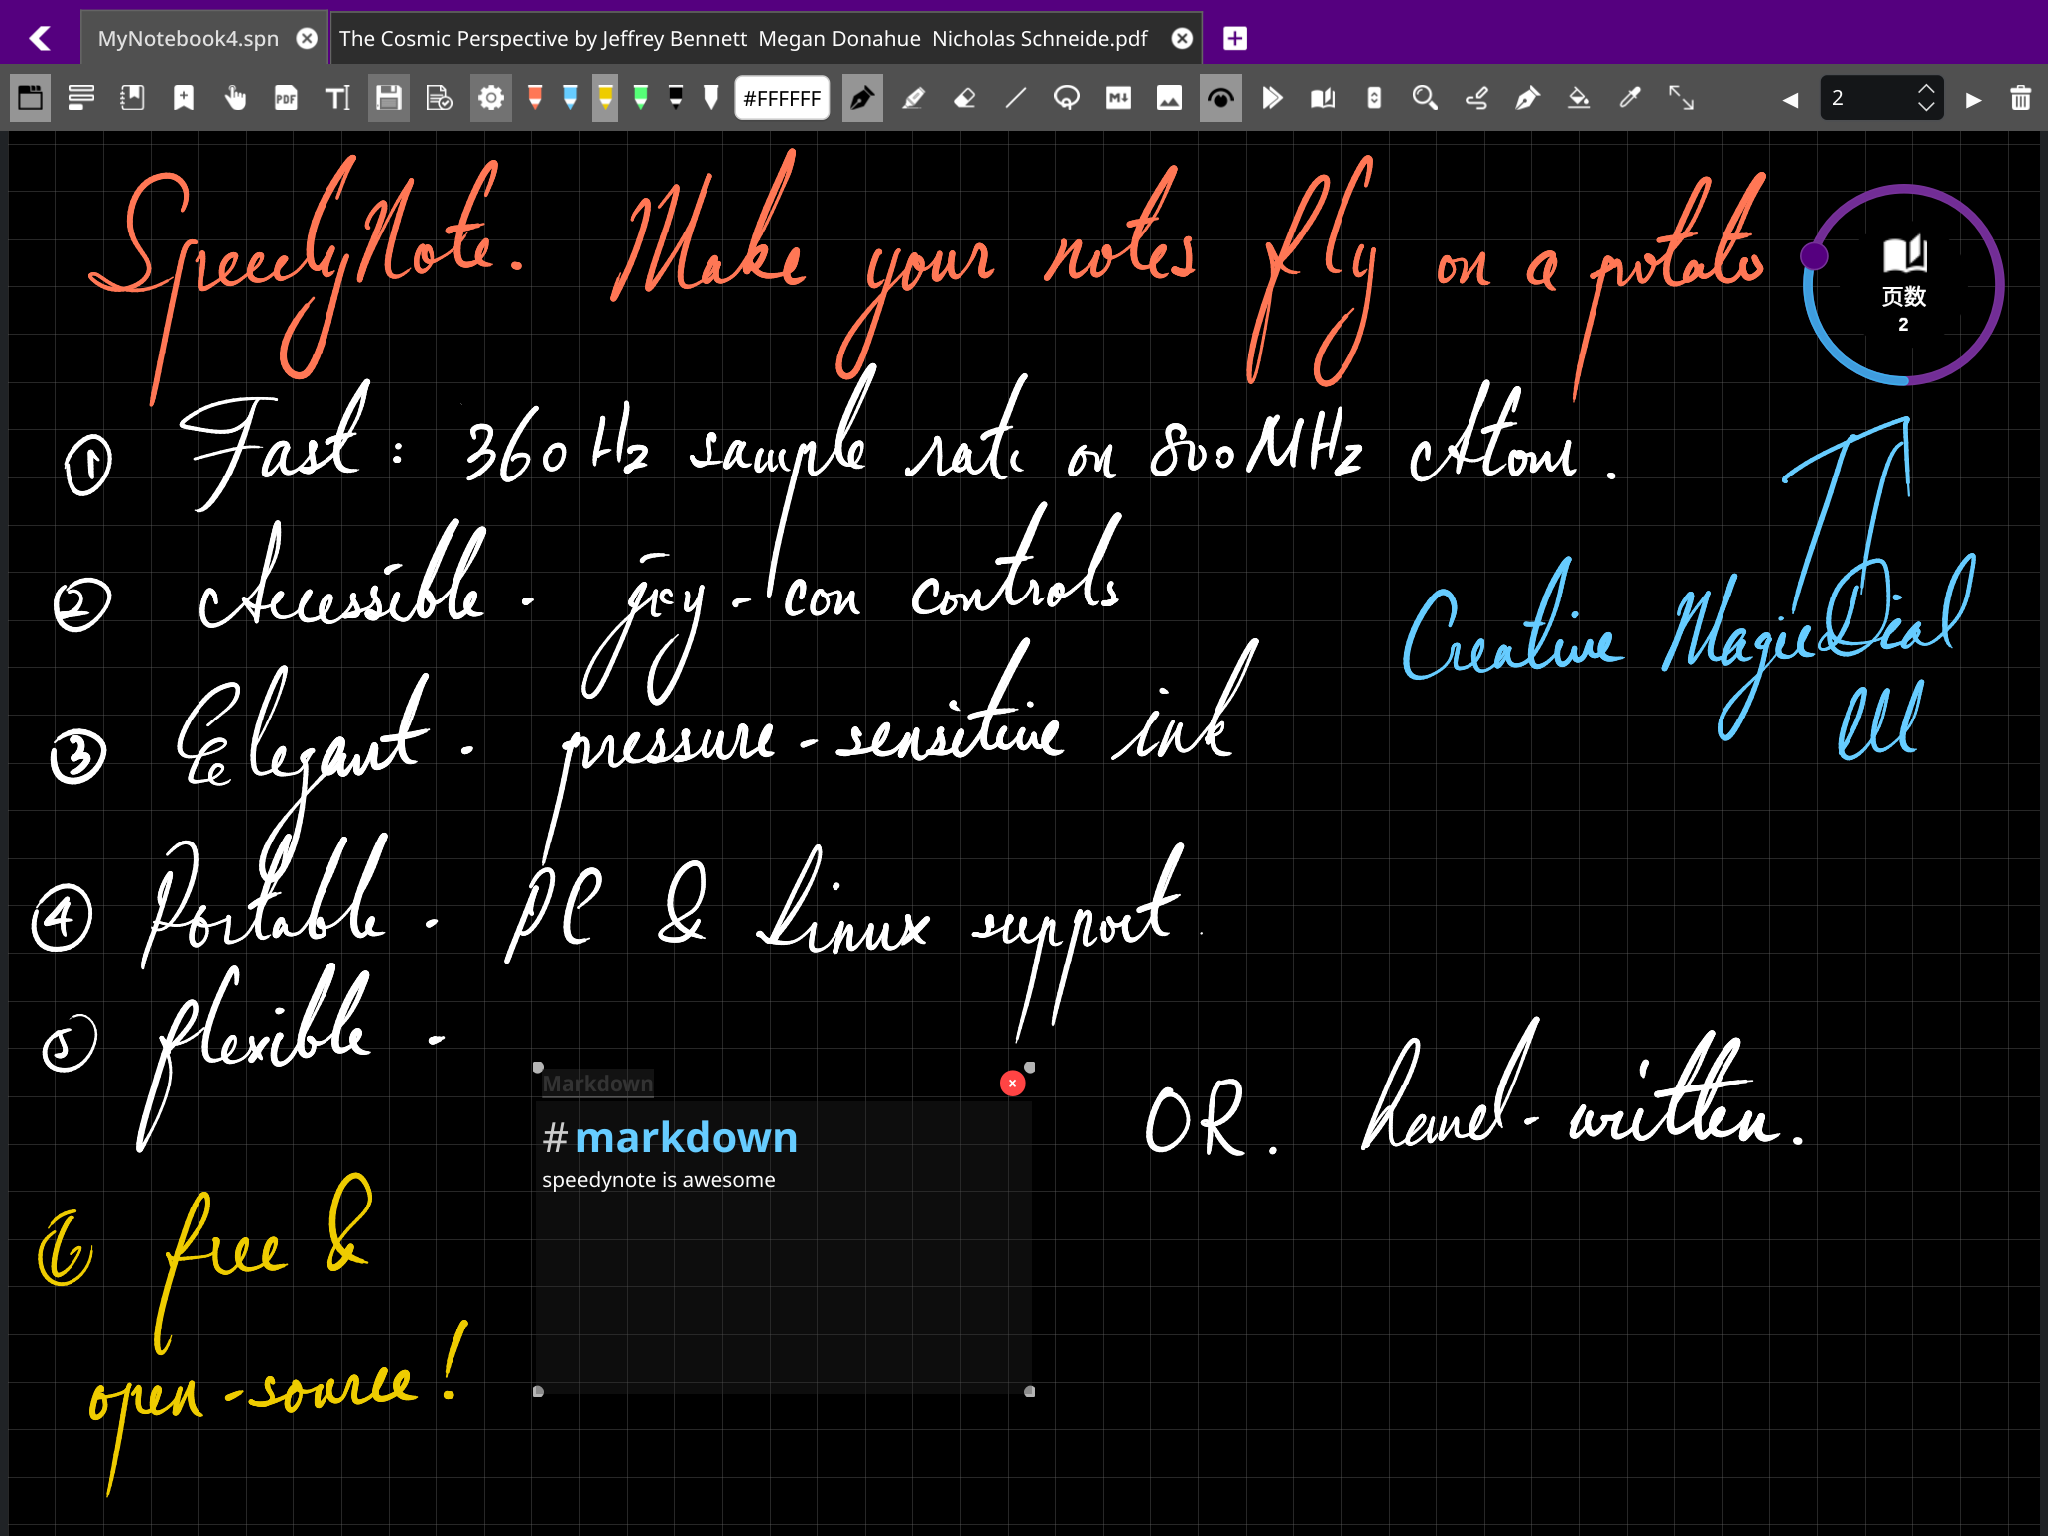 MyNotebook4.spn
The Cosmic Perspective by Jeffrey Bennett Megan Donahue Nicholas Schneide.pdf
PDF
#FFFFFF
M↓
2
SpeedyNote. Make your notes fly on a potato
页数
2
① Fast: 360Hz sample rate on 800MHz Atom.
② Accessible - joy-con controls
Creative MagicDial
③ Elegant - pressure-sensitive ink
④ Portable - PC & Linux support
⑤ flexible -
Markdown
# markdown
speedynote is awesome
OR. hand-written.
⑥ free &
open-source!